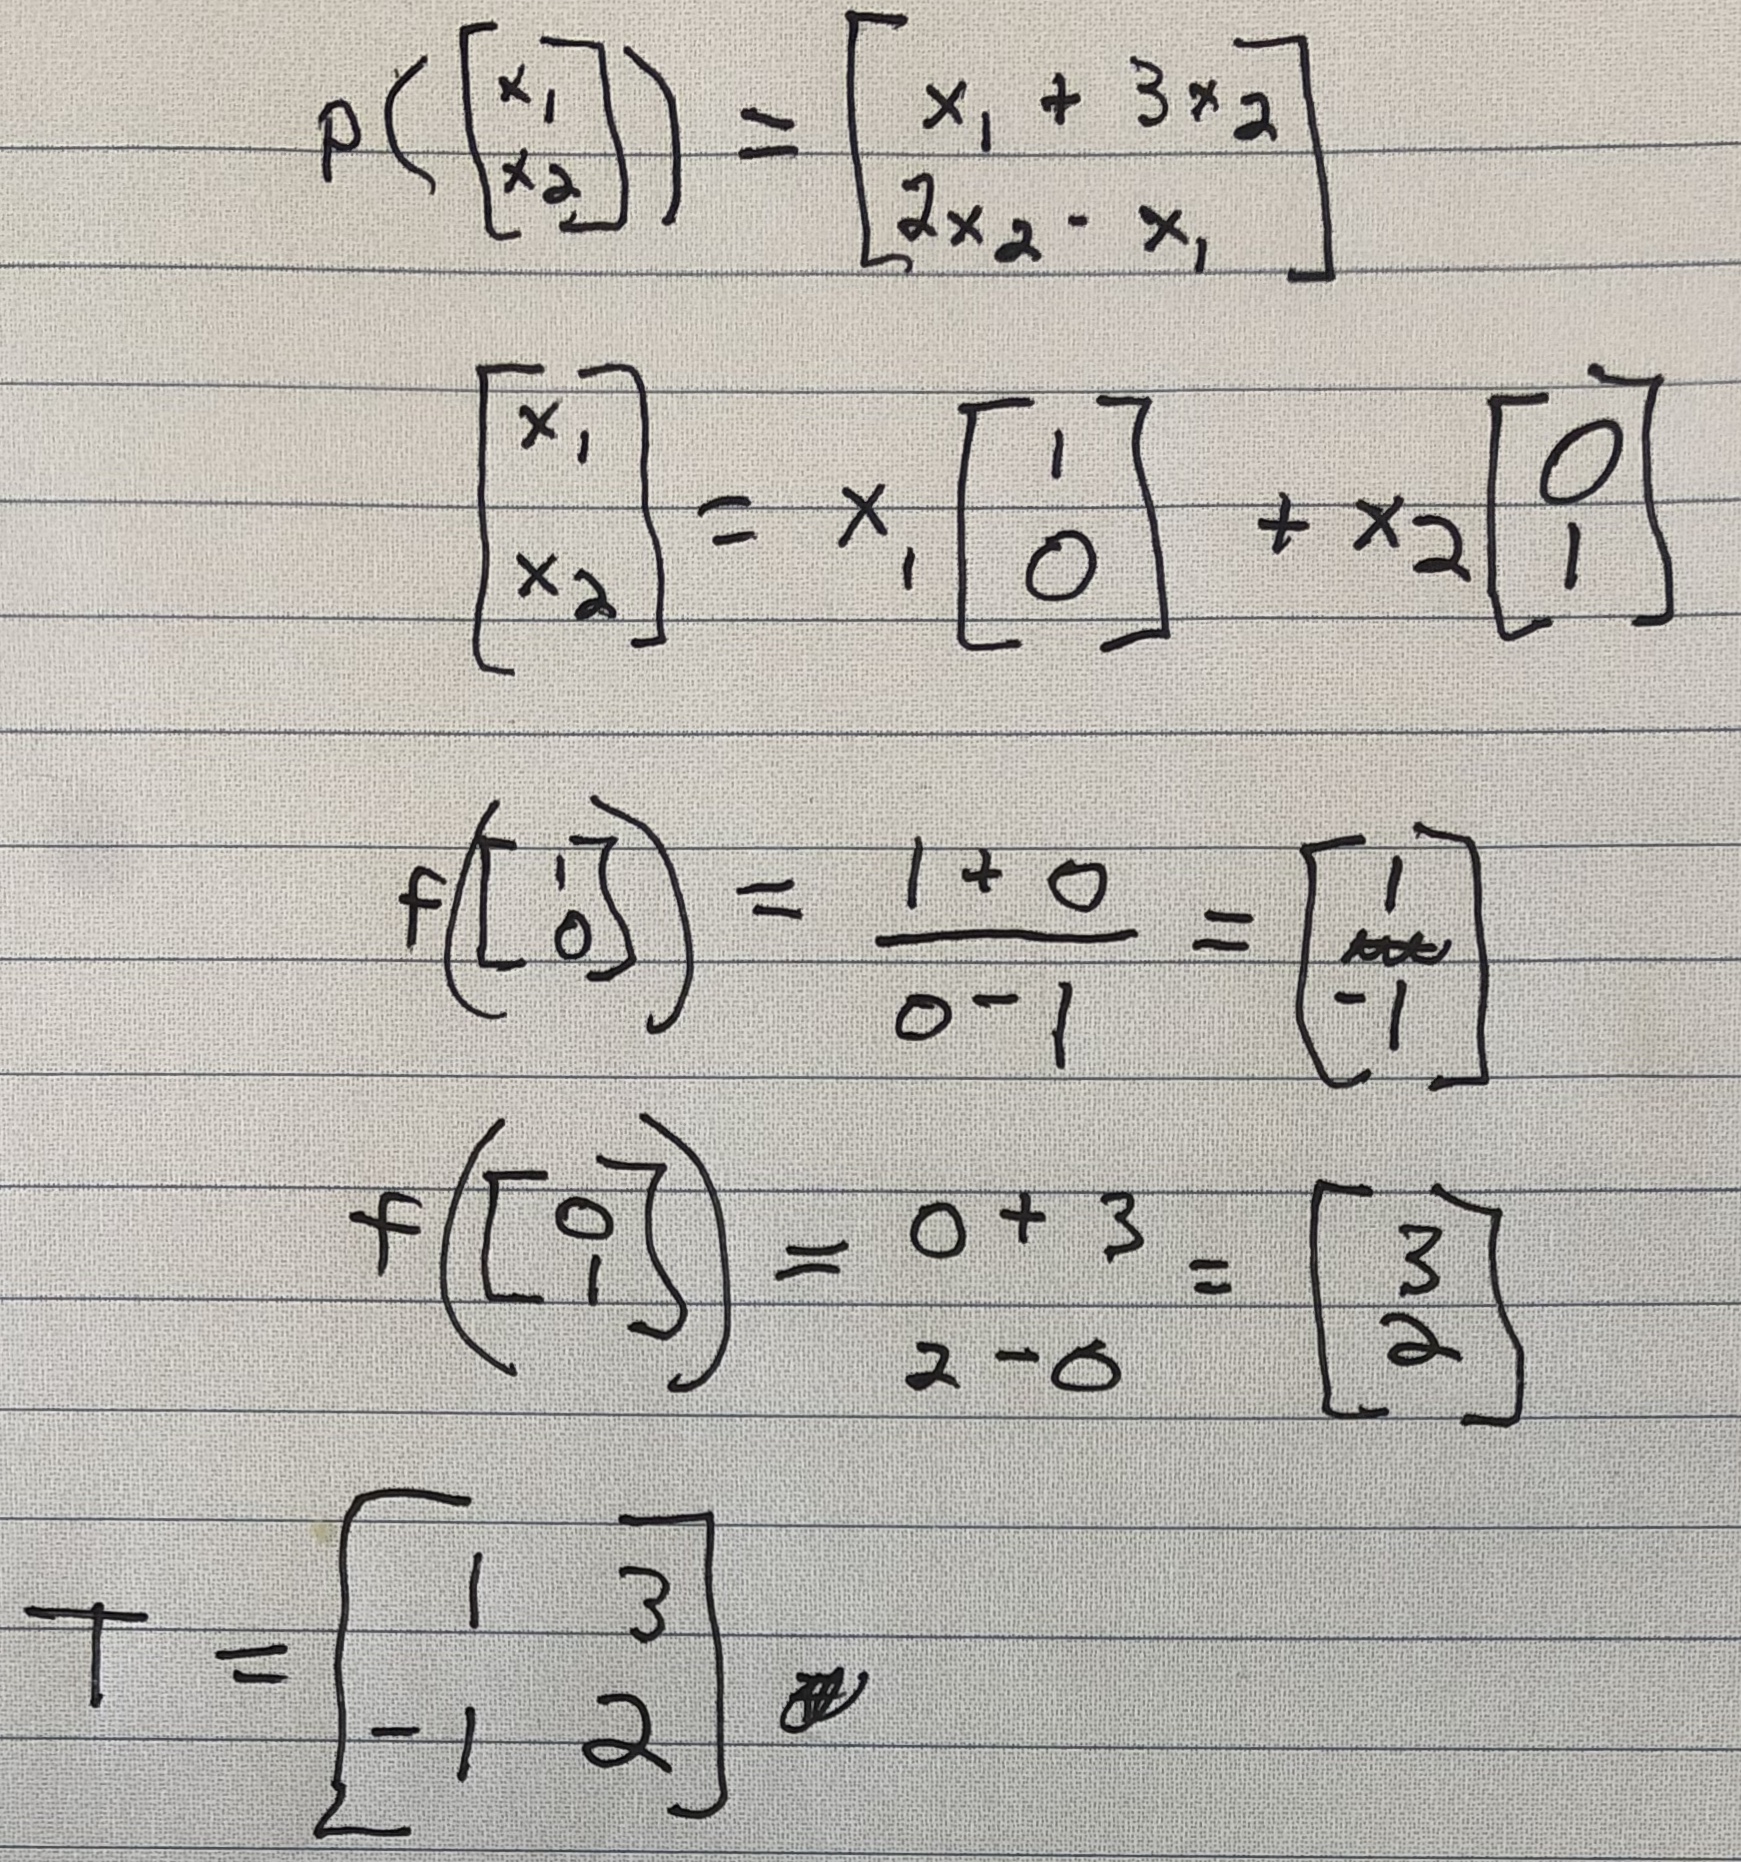 p([x₁ x₂]) = [x₁ + 3x₂
2x₂ - x₁]
[x₁ x₂] = x₁ [1 0] + x₂ [0 1]
f([1 0]) = 1 + 0 / 0 - 1 = [1 -1]
f([0 1]) = 0 + 3
2 - 0 = [3 2]
T = [1 3
-1 2]